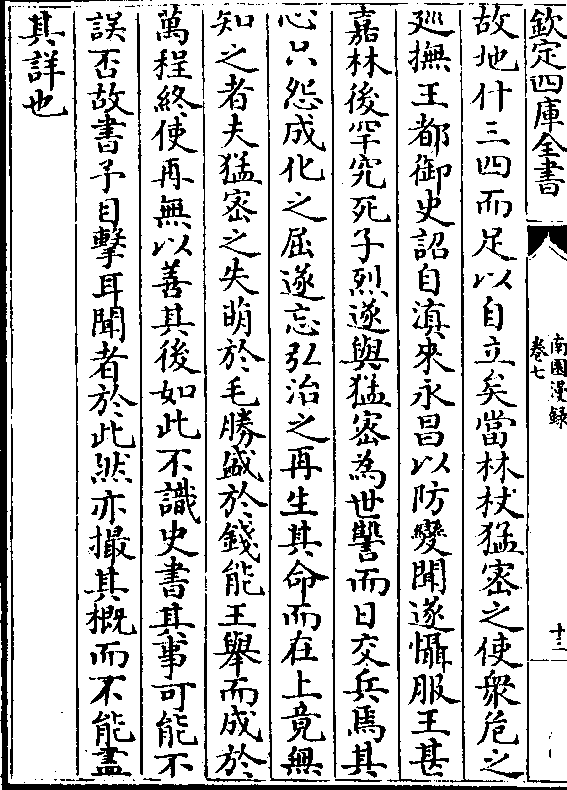 欽定四庫全書
南園漫録
卷七
十三
故地什三四而足以自立矣當林杖猛密之使衆危之
廵撫王都御史詔自滇來永昌以防變聞遂懾服王甚
嘉林後罕究死子烈遂與猛密為世讐而日交兵焉其
心只怨成化之屈遂忘弘治之再生其命而在上竟無
知之者夫猛密之失萌於毛勝盛於錢能王舉而成於
萬程終使再無以善其後如此不識史書其事可能不
誤否故書予目擊耳聞者於此然亦撮其概而不能盡
其詳也